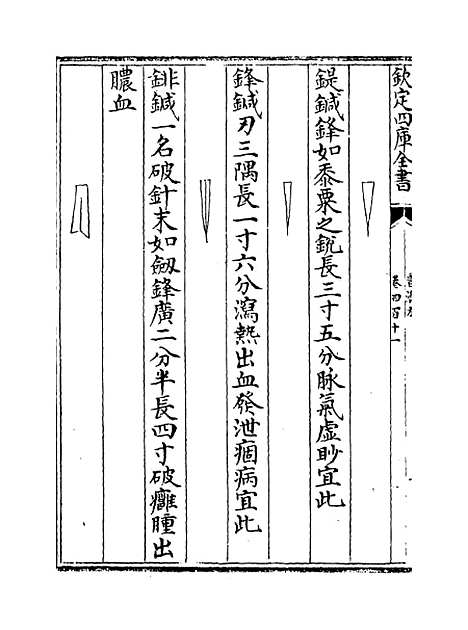 欽定四庫全書
卷四百十一
鍉鍼鋒如黍粟之銳長三寸五分脉氣虛眇宜此
鋒鍼刃三隅長一寸六分瀉熱出血發泄痼病宜此
鈹鍼一名破針末如劔鋒廣二分半長四寸破癰腫出
膿血